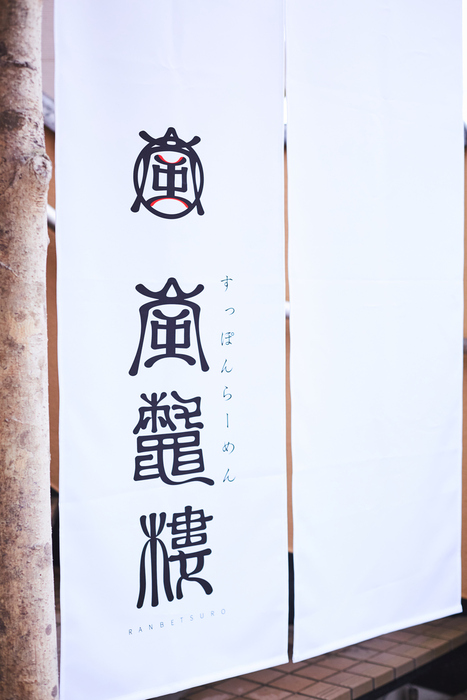 嵐
嵐鼈樓
すっぽんらーめん
RANBETSURO